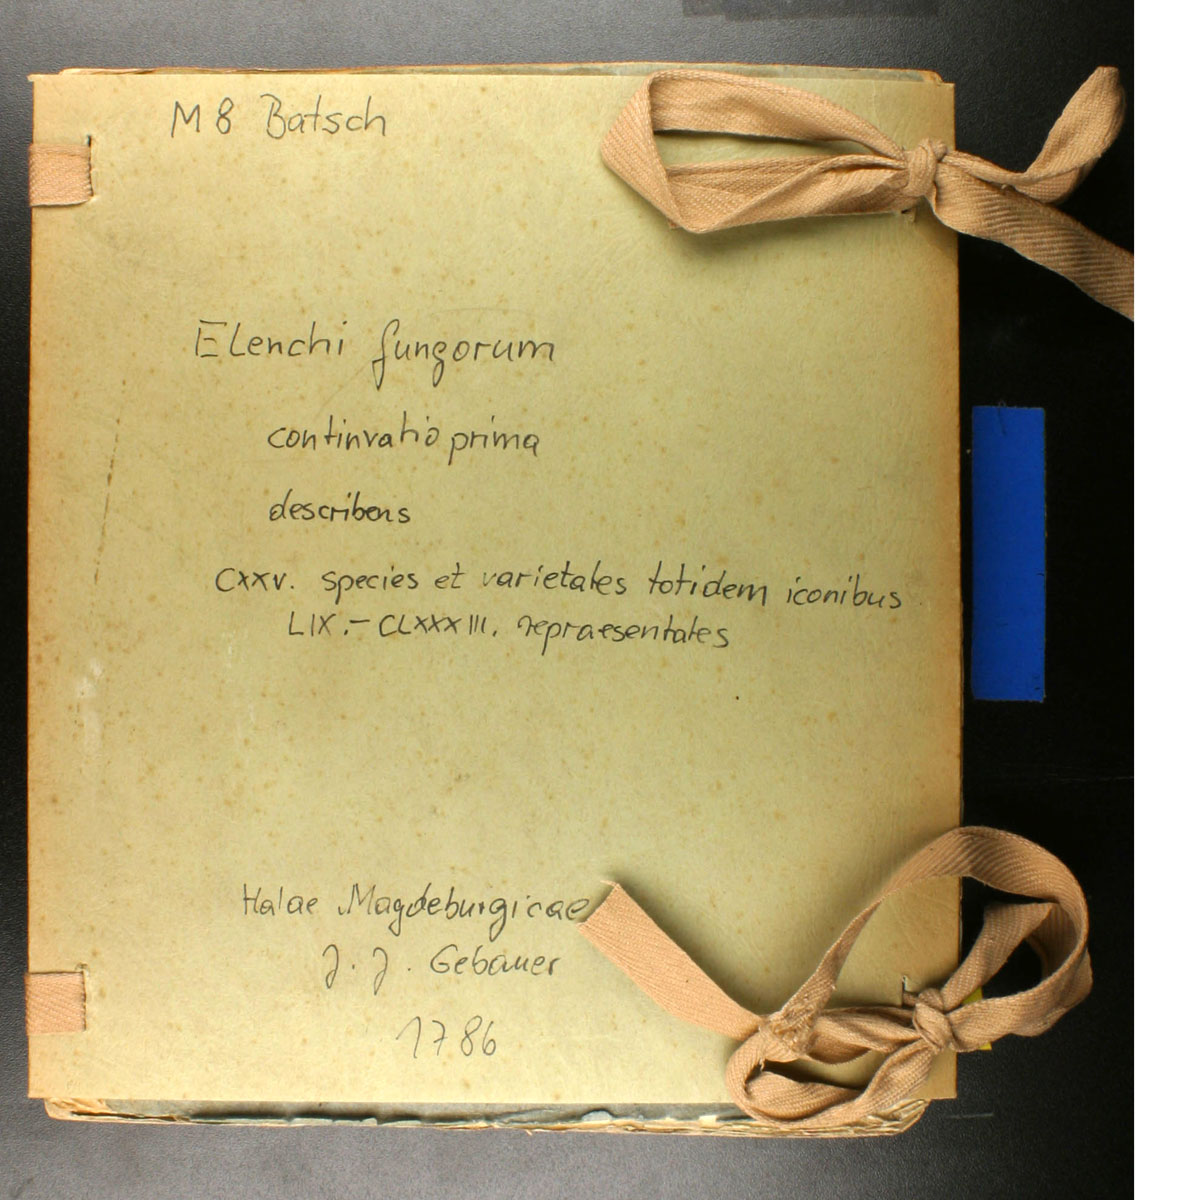 M 8 Batsch
Elenchi fungorum
continvatio prima
describens
CXXV. species et varietates totidem iconibus
LIX.- CLXXXIII. repraesentates
Halae Magdeburgicae
J. J. Gebauer
1786